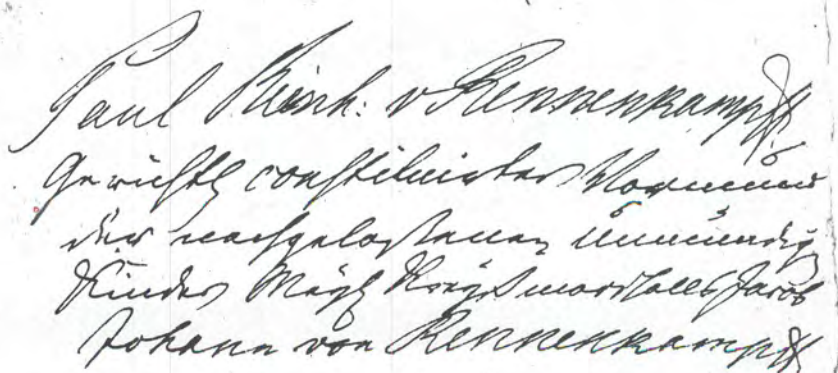 Paul Reinh: v Rennenkampff
Gerichtl constituirter Vormund
der nachgelassenen Unmündigen
Kinder Kreysmarschalls Jacob
Johann von Rennenkampff